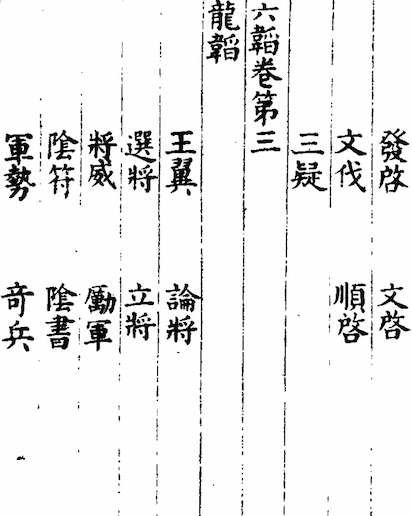 發啓 文啓
文伐 順啓
三疑
六韜卷第三
龍韜
王翼 論將
選將 立將
將威 勵軍
陰符 陰書
軍勢 奇兵